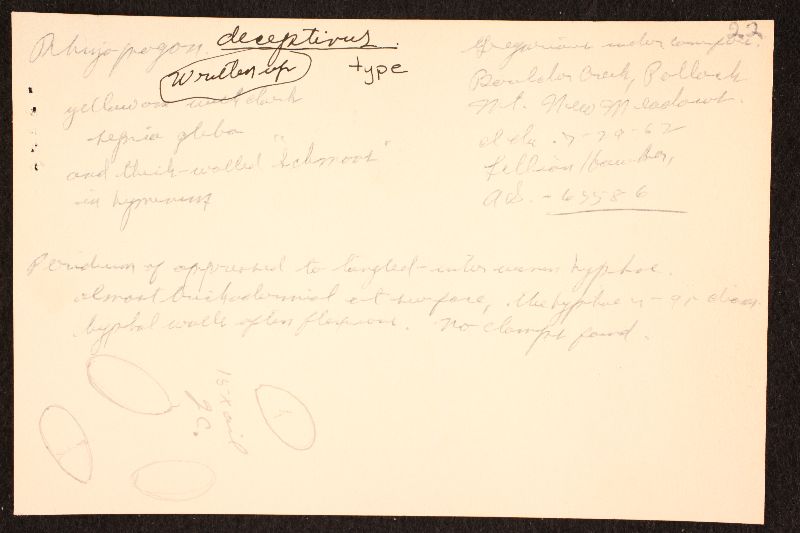 22
Rhizopogon. deceptivus.
Written up
type
yellow
sepia gleba
and thick-walled "Schmoos"
in hymenium
Gregarious under conifers.
Boulder Creek, Pollock
Mt. New Meadows.
Ida. 7-29-62
A.S. - 65586
Peridium of appressed to tangled-interwoven hyphae.
almost trichodermial at surface, the hyphae diam.
hyphal walls often flexuous. No clamps found.
15x oil